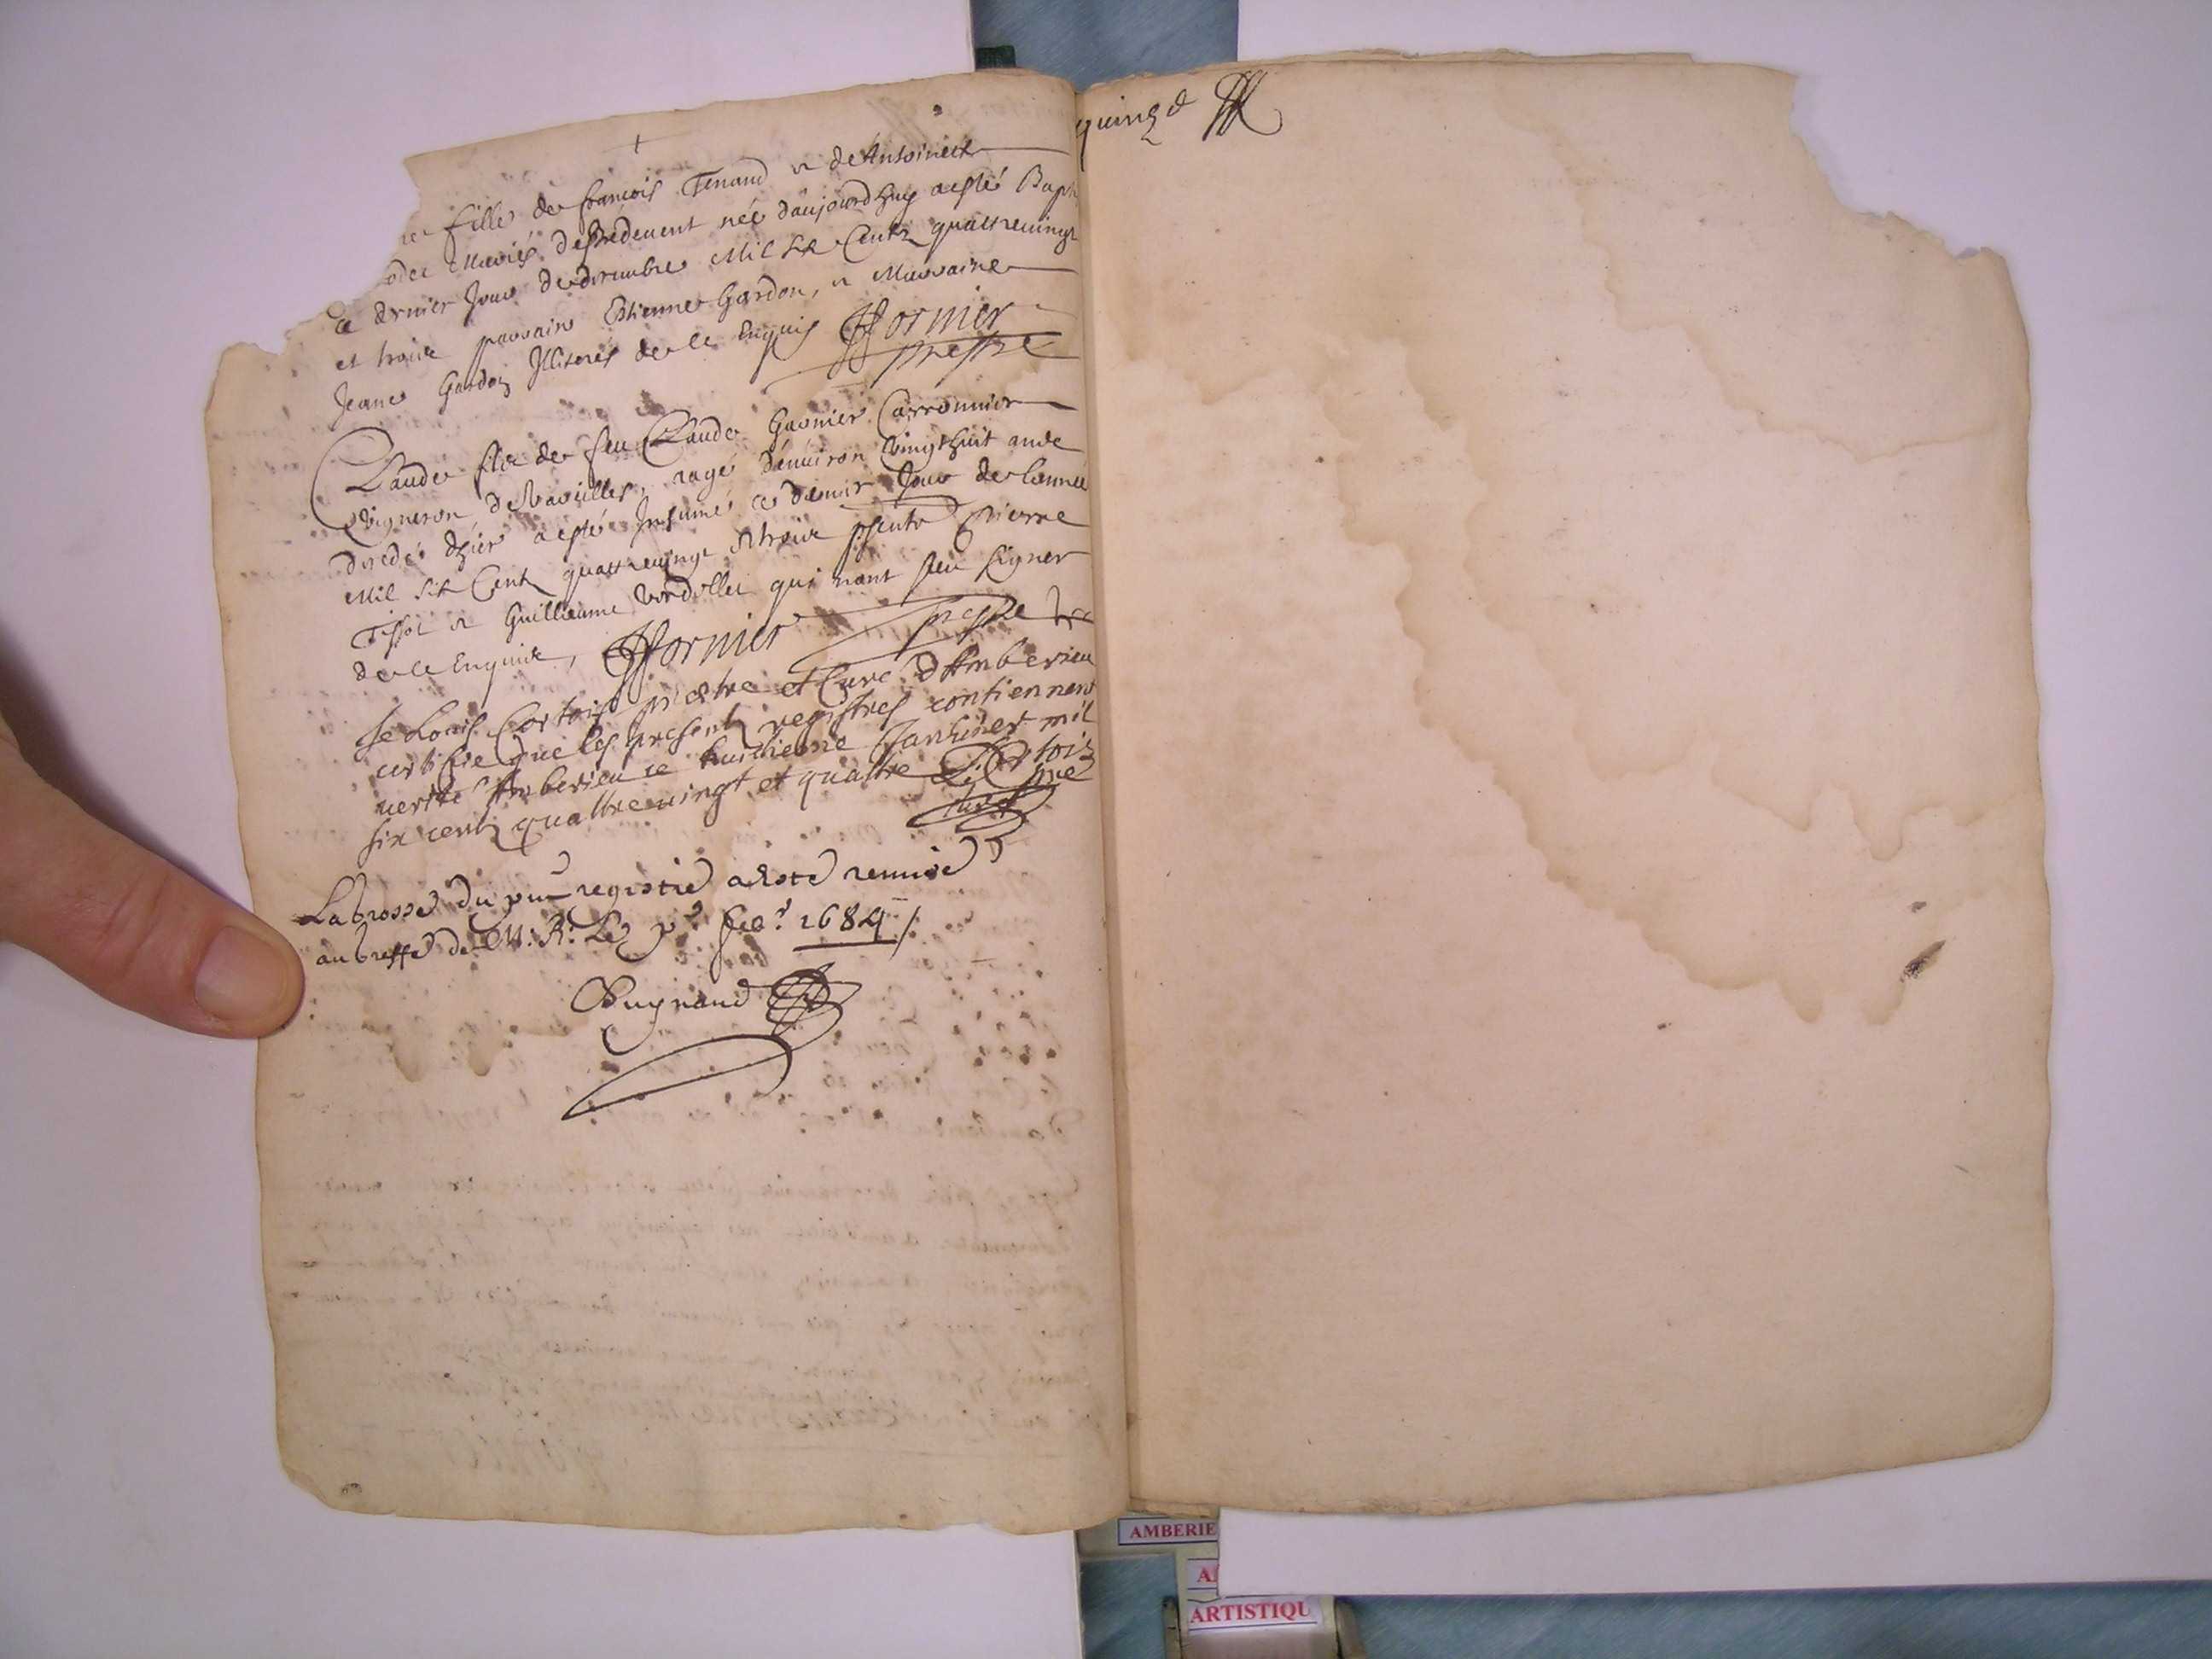 fille de francois Tenand & de Antoinette
Mariés, née daujourdhuy a esté Bapt
ce dernier Jour de decembre Mil six Centz quattrevingt
et troix parrain Estienne Gardon, & Marraine
Jeane Gardon Illiterés de ce Enquis fornier
prestre
Claude filz de feu Claude Garnier Carronnier
vigneron de Vareilles, aagé denuiron vingthuit ans
decedé dhier a esté Inhumé ce dernier Jour de lannée
Mil six Cent quattrevingt & troix psents Pierre
Tissot & Guillieaume qui nont sceu signer
de ce Enquis, fornier prestre
Je Louis Cortois prestre et Cure d'Amberieu
certifie que les presentz registres contiennent
verité Amberieu ce huictieme Januier mil
six centz quattrevingt et quattre L. Cortois
Curé
La Grosse du pnt registre a esté remise
au Greffe de M. R. Le fe. 1684 /.
Bugnand
quinze
AMBERIE
A
ARTISTIQU